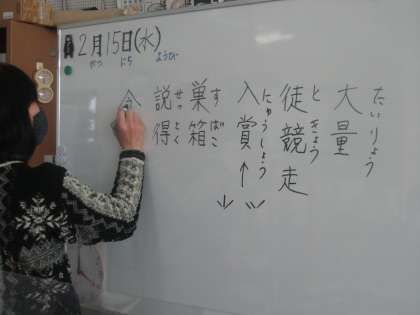 2月15日(水)
がつ にち ようび
大量
たいりょう
徒競走
ときょう
入賞
にゅうしょう
巣箱
すばこ
説得
せっとく